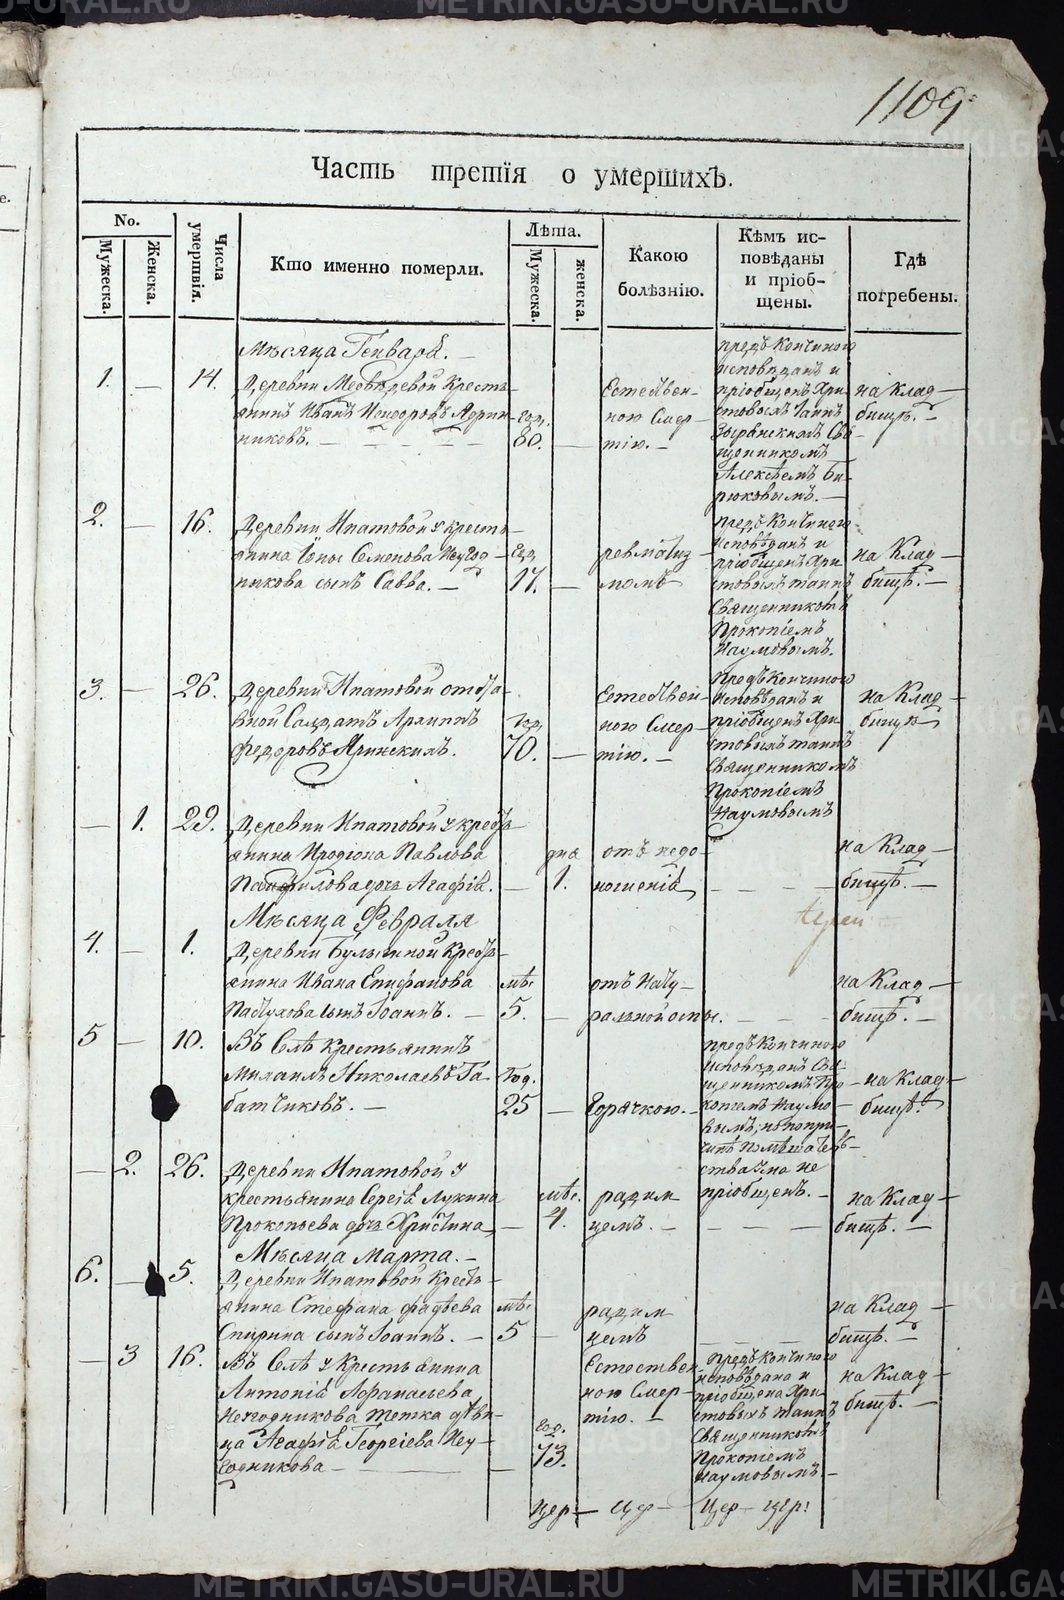 METRIKI.GASO-URAL.RU
1109
Часть третія о умершихъ.
No.
Мужеска.
Женска.
Числа умертвія.
Кто именно померли.
Лѣта.
Мужеска.
женска.
Какою болѣзнію.
Кѣмъ исповѣданы и пріобщены.
Гдѣ погребены.
Мѣсяца Генваря. —
1. — 14. Деревни Медвѣдевой Крестьянинъ Иванъ
год. 80. —
Естественною Смертію. —
предъ Кончиною исповѣданъ и пріобщенъ Христовыхъ Таинъ Зырянскимъ Священникомъ Алексѣемъ Бирюковымъ. —
на Кладбищѣ. —
2. — 16. Деревни Ипатовой у крестьянина Іоны Семенова Неугодникова сынъ Савва. —
год 17. —
ревматизмомъ
предъ Кончиною исповѣданъ и пріобщенъ Христовыхъ таинъ Священникомъ Прокопіемъ Наумовымъ.
на Кладбищѣ. —
3. — 26. Деревни Ипатовой отставной Солдатъ Архиппъ Федоровъ
год 70. —
Естественною Смертію. —
предъ Кончиною исповѣданъ и пріобщенъ Христовыхъ таинъ Священникомъ Прокопіемъ Наумовымъ
на Кладбищѣ
— 1. 29. Деревни Ипатовой у крестьянина Иродіона Павлова дочь Агафія. —
дня 1.
отъ недоношенія
— — —
на Кладбищѣ. —
Мѣсяца Февраля
4. — 1. Деревни Крестьянина Ивана Епифанова Пастухова сынъ Іоаннъ. —
мѣс 5. —
отъ Натуральной оспы.
— — —
на Кладбищѣ. —
5 — 10. Въ Селѣ крестьянинъ Михаилъ Николаевъ Габатчиковъ. —
Год. 25 —
Горячкою. —
предъ Кончиною исповѣданъ Священникомъ Прокопіемъ Наумовымъ, но по причинѣ помѣшательства ума не пріобщенъ. —
на Кладбищѣ.
— 2. 26. Деревни Ипатовой у крестьянина Сергѣя Лукина Прокопьева дочь Христина, —
мѣс. 4.
родимцемъ. —
— — —
на Кладбищѣ. —
Мѣсяца Марта. —
6. — 5. Деревни Ипатовой Крестьянина Стефана Фадѣева Спирина сынъ Іоаннъ. —
мѣс 5 —
родимцемъ
— — —
на Кладбищѣ. —
— 3 16. Въ Селѣ у Крестьянина Антонія Афанасьева Неугодникова тетка дѣвица Агафія Георгіева Неугодникова —
год. 73.
Естественною Смертію. —
предъ Кончиною исповѣдана и пріобщена Христовыхъ таинъ Священникомъ Прокопіемъ Наумовымъ —
на Кладбищѣ. —
METRIKI.GASO-URAL.RU